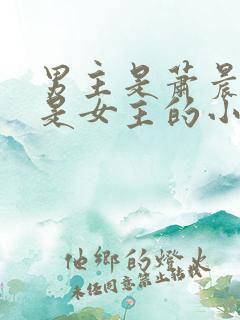 男主是萧晨
是女主的小
他鄉的燈火
未经同意禁止转载